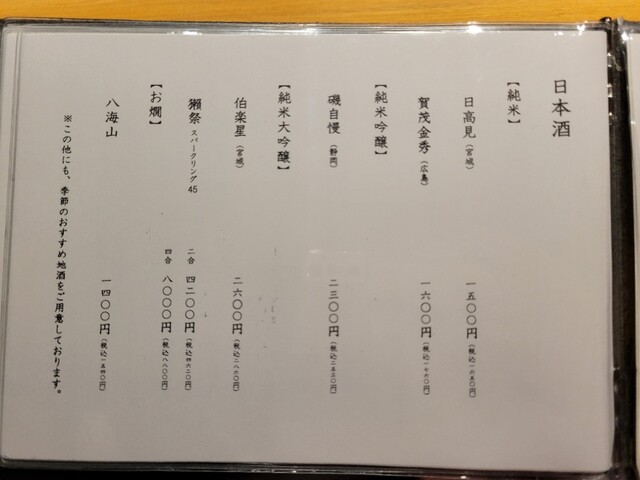 日本酒
【純米】
日高見（宮城） 一五〇〇円（税込一六五〇円）
賀茂金秀（広島） 一六〇〇円（税込一七六〇円）
【純米吟醸】
磯自慢（静岡） 二三〇〇円（税込二五三〇円）
【純米大吟醸】
伯楽星（宮城） 二六〇〇円（税込二八六〇円）
獺祭スパークリング45 二合 四二〇〇円（税込四六二〇円）
四合 八〇〇〇円（税込八八〇〇円）
【お燗】
八海山 一四〇〇円（税込一五四〇円）
※この他にも、季節のおすすめ地酒をご用意しております。